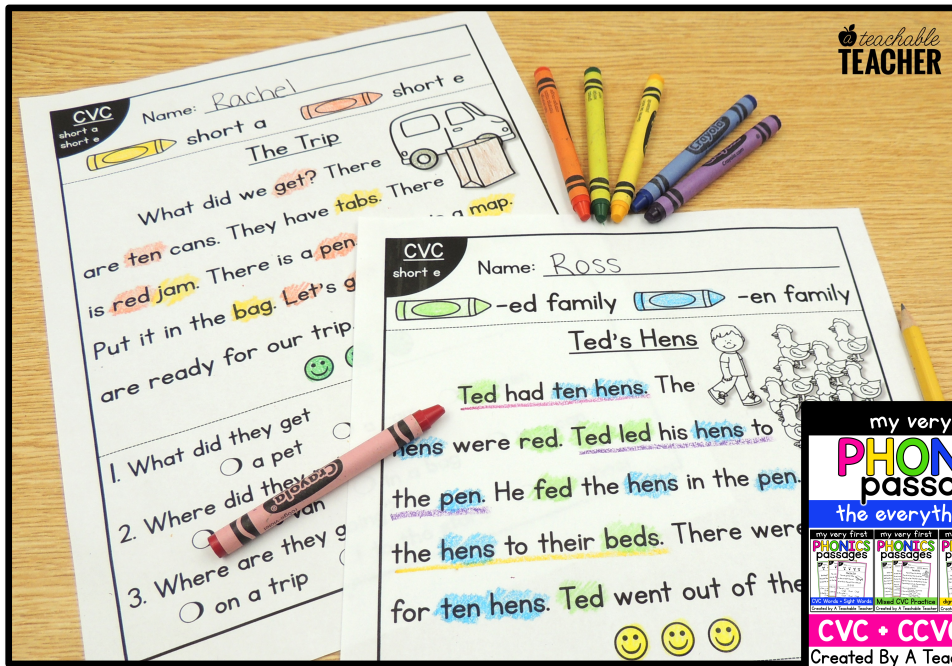 a teachable
TEACHER
CVC
short a
short e
Name: Rachel
short a
short e
The Trip
What did we get? There
are ten cans. They have tabs. There
is red jam. There is a pen.
a map.
Put it in the bag. Let's
are ready for our trip
1. What did they get
a pet
2. Where did they
van
3. Where are they
on a trip
Crayola
CVC
short e
Name: Ross
-ed family
-en family
Ted's Hens
Ted had ten hens. The
hens were red. Ted led his hens to
the pen. He fed the hens in the pen.
the hens to their beds. There were
for ten hens. Ted went out of the
Crayola
my very
PHON
passa
the everyth
my very first
PHONICS
passages
CVC Words + Sight Words
Created by A Teachable Teacher
my very first
PHONICS
passages
Mixed CVC Practice
Created by A Teachable Teacher
CVC + CCVC
Created By A Tea